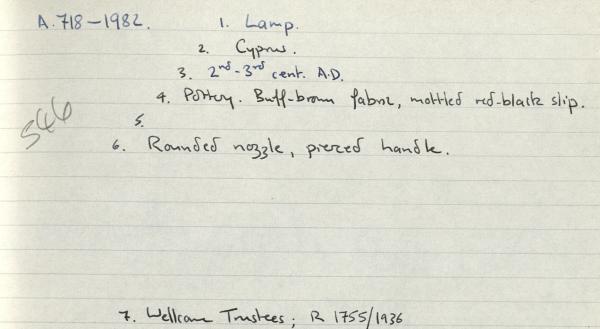 A.718-1982. 1. Lamp.
2. Cyprus.
3. 2nd-3rd cent. A.D.
4. Pottery. Buff-brown fabric, mottled red-black slip.
546
5.
6. Rounded nozzle, pierced handle.
7. Wellcome Trustees; R 1755/1936